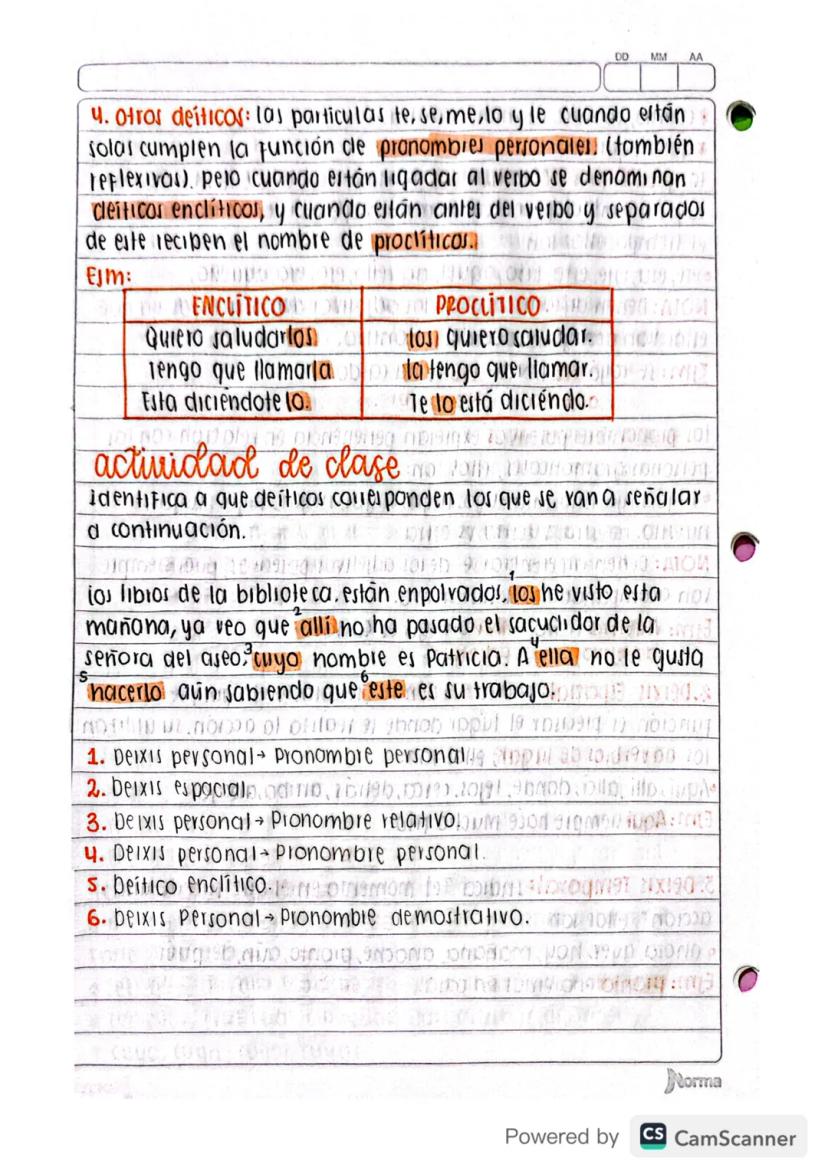 DD MM AA
4. Otros deíticos: las particulas te, se, me, lo y le cuando están
solas cumplen la función de pronombres personales. (también
reflexivos). pero cuando están ligadas al verbo se denominan
deíticos enclíticos, y cuando están antes del verbo y separados
de este reciben el nombre de proclíticos.
Ejm:
ENCLÍTICO PROCLÍTICO
Quiero saludarlos los quiero saludar.
Tengo que llamarla la tengo que llamar.
Esta diciéndotelo. Te lo está diciéndo.
actividad de clase
Identifica a que deíticos corresponden los que se van a señalar
a continuación.
los libros de la biblioteca están enpolvados, los1 he visto esta
mañana, ya veo que allí2 no ha pasado el sacuclidor de la
señora del aseo, cuyo3 nombre es Patricia. A ella4 no le gusta
hacerlo5 aún sabiendo que este6 es su trabajo.
1. Deixis personal→ Pronombre personal.
2. Deixis espacial.
3. Deixis personal→ Pronombre relativo.
4. Deixis personal→ Pronombre personal.
5. Deítico enclítico.
6. Deixis Personal→ Pronombre demostrativo.
Norma
Powered by CS CamScanner